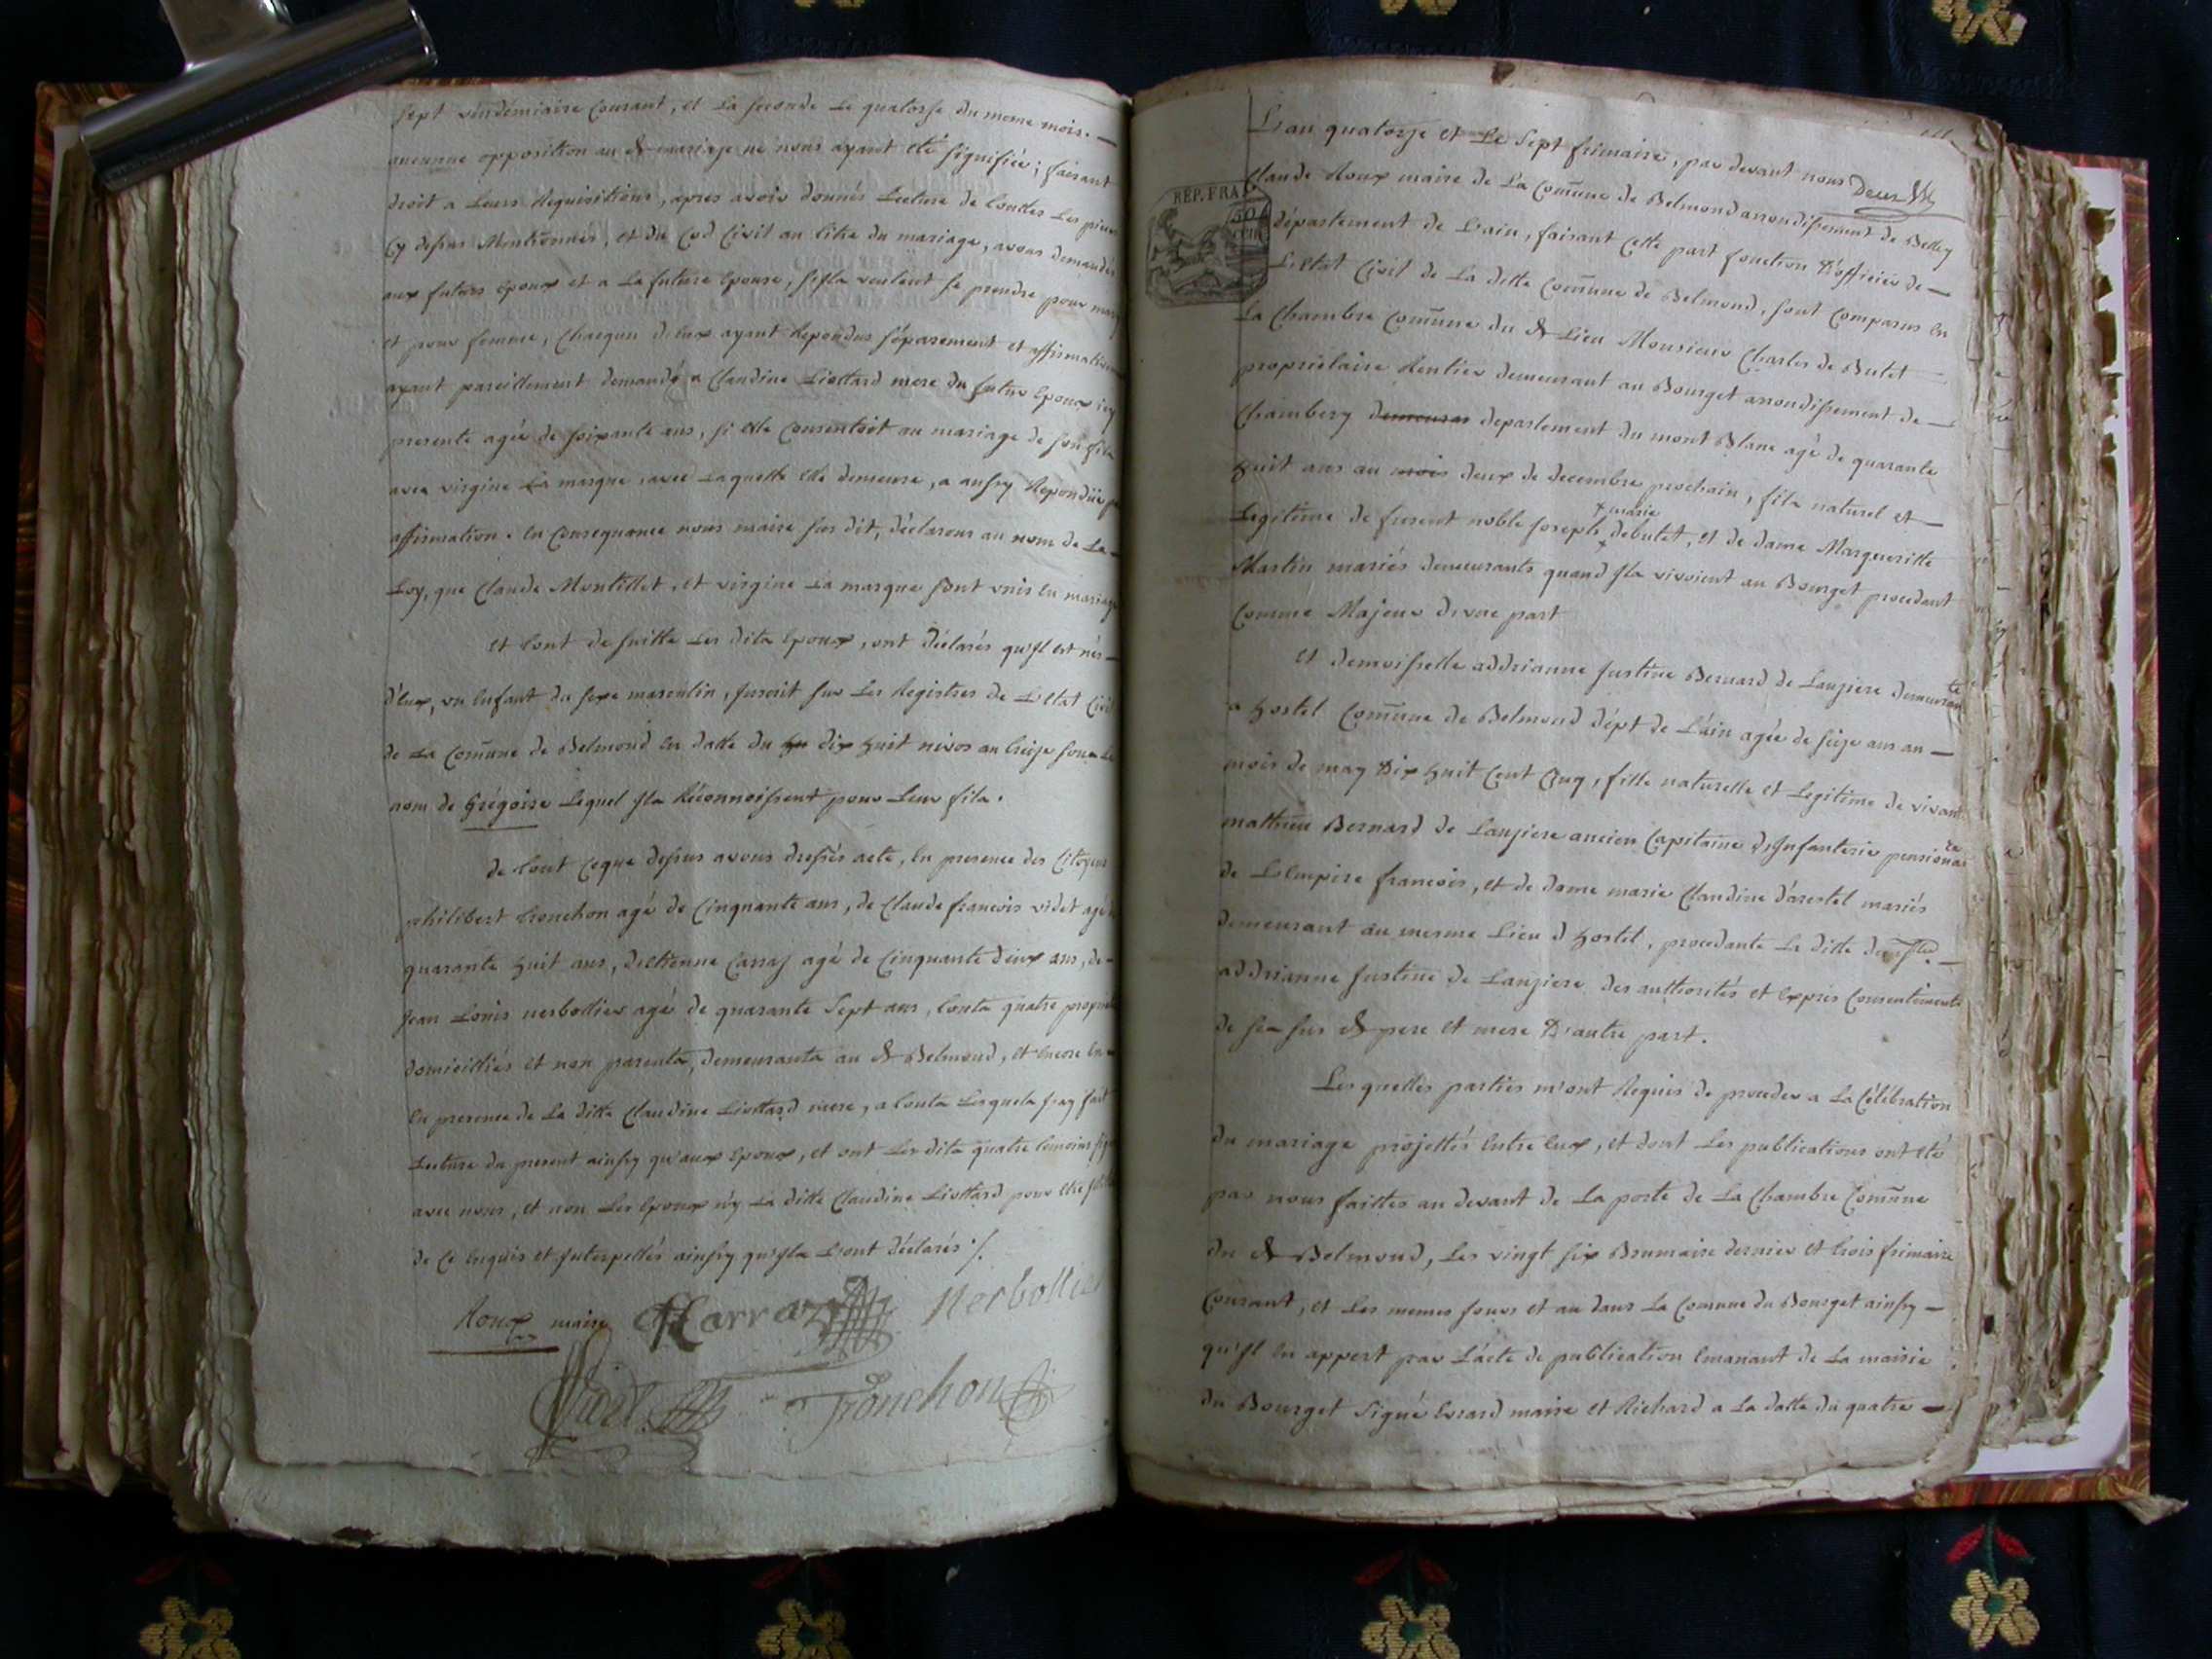 sept vendemiaire Courant, et la seconde le quatorse du meme mois. —
aucunne opposition au dt mariage ne nous ayant eté signifiée ; faisant
droit a leurs Requisitions, apres avoir donnés lecture de touttes les pieces
Cy dessus Mentionnés, et du Cod Civil au titre du mariage, avons demandés
aux futurs epoux et a la future epouse, s'ils veulent se prendre pour mary
et pour femme, Chaqun d'eux ayant Repondus séparement et affirmativement
ayant pareillement demandé a Claudine Liottard mere du futur epoux icy
presente agée de soixante ans, si elle Consentoit au mariage de son fils
avec virgine La marque, avec laquelle elle demeure, a ainsy Repondüe par
affirmation. en Consequance nous maire sus dit, déclarons au nom de La —
Loy, que Claude Montillet, et virgine La marque sont unis en mariage
et tout de suitte les dits epoux, ont déclarés qu'jl est nés —
d'eux, un enfant du sexe masculin, Jnscrit sur les Registres de L'etat Civil
de La Comune de Belmond en datte du dix huit nivos an treize sous le
nom de Grégoire lequel jls Réconnoissent pour leur fils.
de tout ceque dessus avons dressés acte, en presence des Citoyens
philibert tronchon agé de Cinquante ans, de Claude francois videt agé de
quarante huit ans, d'ettienne Carraz agé de Cinquante deux ans, de —
Jean Louis nerbollier agé de quarante Sept ans, touts quatre propriet
domiciliés et non parents, demeurants au dt Belmond, et encore en —
en presence de La ditte Claudine Liottard mere, a touts lesquels j'ay fait
Lecture du present ainsy qu'aux epoux, et ont les dits quatre temoins signé
avec nous, et non les epoux n'y La ditte Claudine Liottard pour etre jlliteré
de ce enquis et Jnterpellés ainsy qu'jls L'ont déclarés ./.
Roux maire Carraz Nerbollier
Videt Tronchon
L'an quatorze et Le Sept frimaire, par devant nous
Deux
REP. FRA
50
Claude Roux maire de La Comune de Belmond arrondissement de Belley
département de L'ain, faisant cette part fonction D'officier de —
L'etat Civil de La ditte Comune de Belmond, sont Comparus en
La Chambre Comune du dt Lieu Monsieur Charles de Butet —
proprietaire Rentier demeurant au Bourget arrondissement de —
Chambery demeurant departement du mont Blanc agé de quarante
huit ans au mois deux de decembre prochain, fils naturel et —
Legitime de furent noble Joseph x debutet, et de dame Margueritte
x marie
Martin mariés demeurants quand jls vivoient au Bourget procedant
Comme Majeur d'une part
et demoiselle addrianne Justine Bernard de Lauziere demeurante
a hostel Comune de Belmond dépt de L'ain agée de seize ans au —
mois de may Dix huit Cent Cinq, fille naturelle et Legitime de vivant
matthieu Bernard de Lauziere ancien Capitaine d'Jnfanterie pensionaire
de L'empire francois, et de dame marie Claudine d'arestel mariés
demeurant au mesme Lieu d'hostel, procedante La ditte dlle —
addrianne Justine de Lauziere des authorités et exprés Consentements
de ses sus dt pere et mere D'autre part.
Lesquelles parties m'ont Requis de proceder a La Célébration
du mariage projettés entre eux, et dont Les publications ont eté
par nous faittes au devant de La porte de La Chambre Comune
du dt Belmond, Les vingt six Brumaire dernier et trois frimaire
Courant, et Les memes jours et an dans La Comune du Bourget ainsy —
qu'jl en appert par L'acte de publication emanant de La mairie
du Bourget Signé evrard maire et Richard a La datte du quatre —